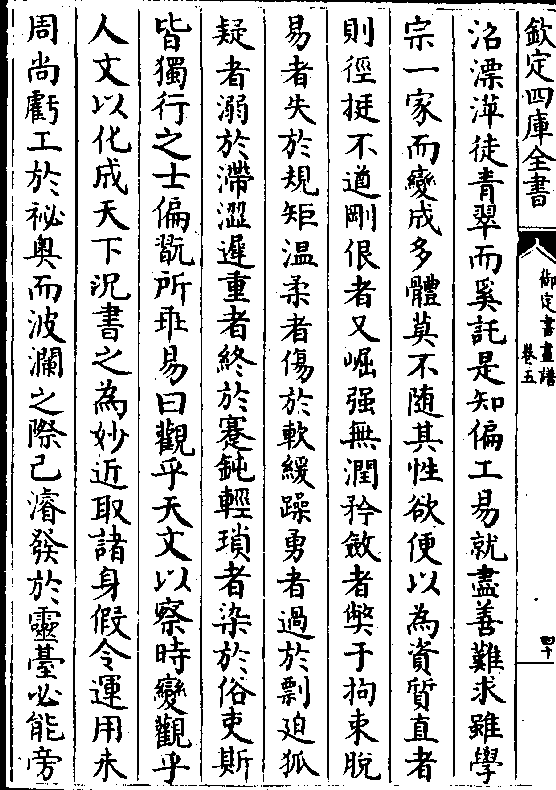 欽定四庫全書
御定書畫譜
卷五
四十
沼漂萍徒青翠而奚託是知偏工易就盡善難求雖學
宗一家而變成多體莫不随其性欲便以為資質直者
則徑挺不遒剛佷者又崛强無潤矜斂者弊于拘束脫
易者失於規矩温柔者傷於軟緩躁勇者過於剽迫狐
疑者溺於滯澀遲重者終於蹇鈍輕瑣者染於俗吏斯
皆獨行之士偏翫所乖易曰觀乎天文以察時變觀乎
人文以化成天下況書之為妙近取諸身假令運用未
周尚虧工於祕奥而波瀾之際已濬發於靈臺必能旁